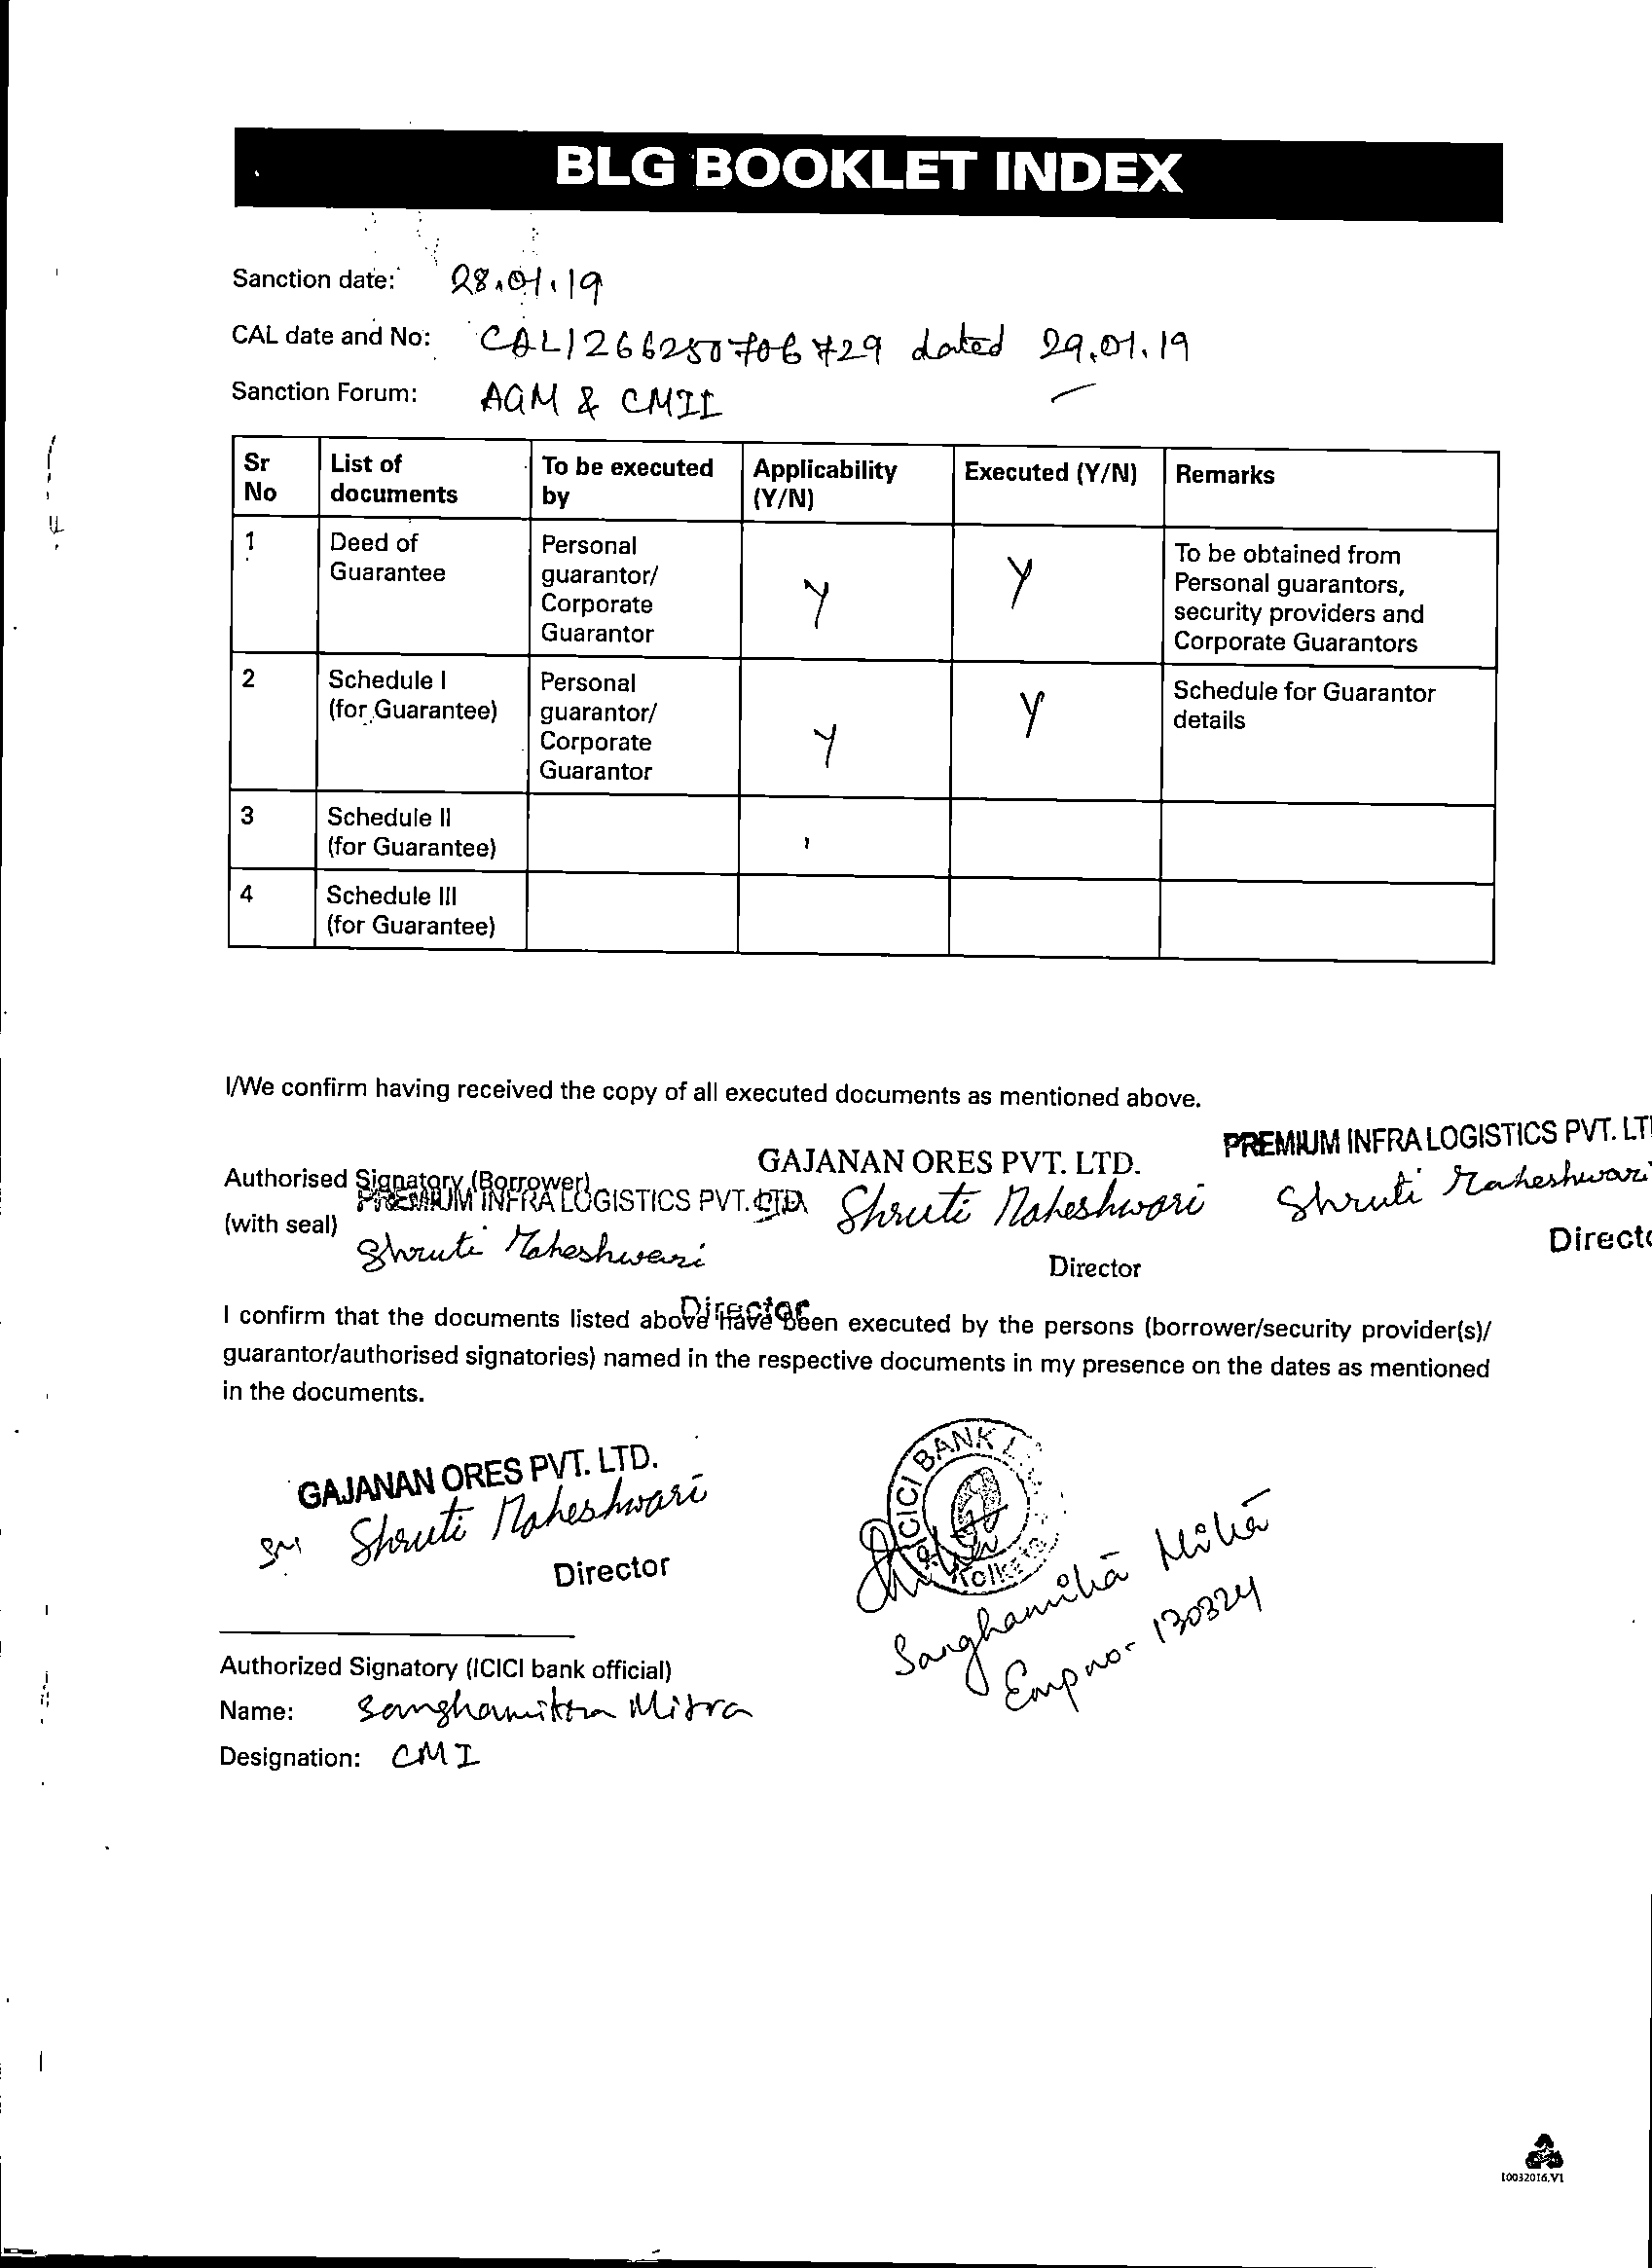 BLG BOOKLET INDEX
Sanction date: 28.01.19
CAL date and No: CAL1266250706729 dated 29.01.19
Sanction Forum: AGM & CMII
Sr No | List of documents | To be executed by | Applicability (Y/N) | Executed (Y/N) | Remarks
1 | Deed of Guarantee | Personal guarantor/ Corporate Guarantor | Y | Y | To be obtained from Personal guarantors, security providers and Corporate Guarantors
2 | Schedule I (for Guarantee) | Personal guarantor/ Corporate Guarantor | Y | Y | Schedule for Guarantor details
3 | Schedule II (for Guarantee)
4 | Schedule III (for Guarantee)
I/We confirm having received the copy of all executed documents as mentioned above.
PREMIUM INFRA LOGISTICS PVT. LT
GAJANAN ORES PVT. LTD.
Authorised Signatory (Borrower)
PREMIUM INFRA LOGISTICS PVT. LTD.
Shruti Maheshwari
Shruti Maheshwari
(with seal)
Shruti Maheshwari
Director
Directo
Director
I confirm that the documents listed above have been executed by the persons (borrower/security provider(s)/
guarantor/authorised signatories) named in the respective documents in my presence on the dates as mentioned
in the documents.
GAJANAN ORES PVT. LTD.
Shruti Maheshwari
Director
ICICI BANK
Sanghamitra Mitra
Emp no- 130324
Authorized Signatory (ICICI bank official)
Name: Sanghamittra Mitra
Designation: CMI
10032016.V1